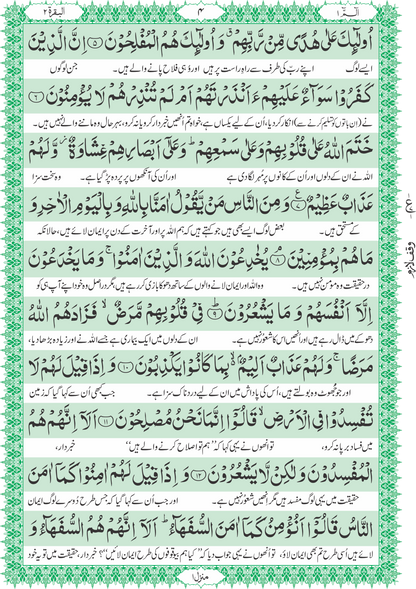 البقرة ۲
۴
الٓمّٓ ۱
اُولٰٓئِكَ عَلٰى هُدًى مِّنْ رَّبِّهِمْ ۗ وَ اُولٰٓئِكَ هُمُ الْمُفْلِحُوْنَ ۵ اِنَّ الَّذِيْنَ
ایسے لوگ اپنے رب کی طرف سے راہِ راست پر ہیں اور وہی فلاح پانے والے ہیں۔ جن لوگوں
كَفَرُوْا سَوَآءٌ عَلَيْهِمْ ءَاَنْذَرْتَهُمْ اَمْ لَمْ تُنْذِرْهُمْ لَا يُؤْمِنُوْنَ ۶
نے (ان باتوں کو تسلیم کرنے سے) انکار کر دیا، اُن کے لیے یکساں ہے، خواہ تم اُنھیں خبردار کرو یا نہ کرو، بہرحال وہ ماننے والے نہیں ہیں۔
خَتَمَ اللّٰهُ عَلٰى قُلُوْبِهِمْ وَ عَلٰى سَمْعِهِمْ ؕ وَ عَلٰٓى اَبْصَارِهِمْ غِشَاوَةٌ ؗ وَّ لَهُمْ
اللہ نے ان کے دلوں اور اُن کے کانوں پر مُہر لگا دی ہے اور اُن کی آنکھوں پر پردہ پڑ گیا ہے۔ وہ سخت سزا
عَذَابٌ عَظِيْمٌ ۷ وَ مِنَ النَّاسِ مَنْ يَّقُوْلُ اٰمَنَّا بِاللّٰهِ وَ بِالْيَوْمِ الْاٰخِرِ وَ
کے مستحق ہیں۔ بعض لوگ ایسے بھی ہیں جو کہتے ہیں کہ ہم اللہ پر اور آخرت کے دن پر ایمان لائے ہیں، حالانکہ
مَا هُمْ بِمُؤْمِنِيْنَ ۸ يُخٰدِعُوْنَ اللّٰهَ وَ الَّذِيْنَ اٰمَنُوْا ۚ وَ مَا يَخْدَعُوْنَ
درحقیقت وہ مومن نہیں ہیں۔ وہ اللہ اور ایمان لانے والوں کے ساتھ دھوکا بازی کر رہے ہیں، مگر دراصل وہ خود اپنے آپ ہی کو
اِلَّاۤ اَنْفُسَهُمْ وَ مَا يَشْعُرُوْنَ ۹ فِيْ قُلُوْبِهِمْ مَّرَضٌ ۙ فَزَادَهُمُ اللّٰهُ
دھوکے میں ڈال رہے ہیں اور انھیں اس کا شعور نہیں ہے۔ ان کے دلوں میں ایک بیماری ہے جسے اللہ نے اور زیادہ بڑھا دیا،
مَرَضًا ۚ وَ لَهُمْ عَذَابٌ اَلِيْمٌۢ ۙ بِمَا كَانُوْا يَكْذِبُوْنَ ۱۰ وَ اِذَا قِيْلَ لَهُمْ لَا
اور جو جھوٹ وہ بولتے ہیں، اُس کی پاداش میں ان کے لیے دردناک سزا ہے۔ جب کبھی اُن سے کہا گیا کہ زمین
تُفْسِدُوْا فِي الْاَرْضِ ۙ قَالُوْۤا اِنَّمَا نَحْنُ مُصْلِحُوْنَ ۱۱ اَلَاۤ اِنَّهُمْ هُمُ
میں فساد برپا نہ کرو، تو اُنھوں نے یہی کہا کہ ”ہم تو اصلاح کرنے والے ہیں“ خبردار،
الْمُفْسِدُوْنَ وَ لٰكِنْ لَّا يَشْعُرُوْنَ ۱۲ وَ اِذَا قِيْلَ لَهُمْ اٰمِنُوْا كَمَاۤ اٰمَنَ
حقیقت میں یہی لوگ مفسد ہیں مگر انھیں شعور نہیں ہے۔ اور جب اُن سے کہا گیا کہ جس طرح دُوسرے لوگ ایمان
النَّاسُ قَالُوْۤا اَنُؤْمِنُ كَمَاۤ اٰمَنَ السُّفَهَآءُ ؕ اَلَاۤ اِنَّهُمْ هُمُ السُّفَهَآءُ وَ
لائے ہیں اُسی طرح تم بھی ایمان لاؤ، تو اُنھوں نے یہی جواب دیا کہ ”کیا ہم بیوقوفوں کی طرح ایمان لائیں“؟ خبردار، حقیقت میں تو یہ خود
وقف لازم
منزل ۱